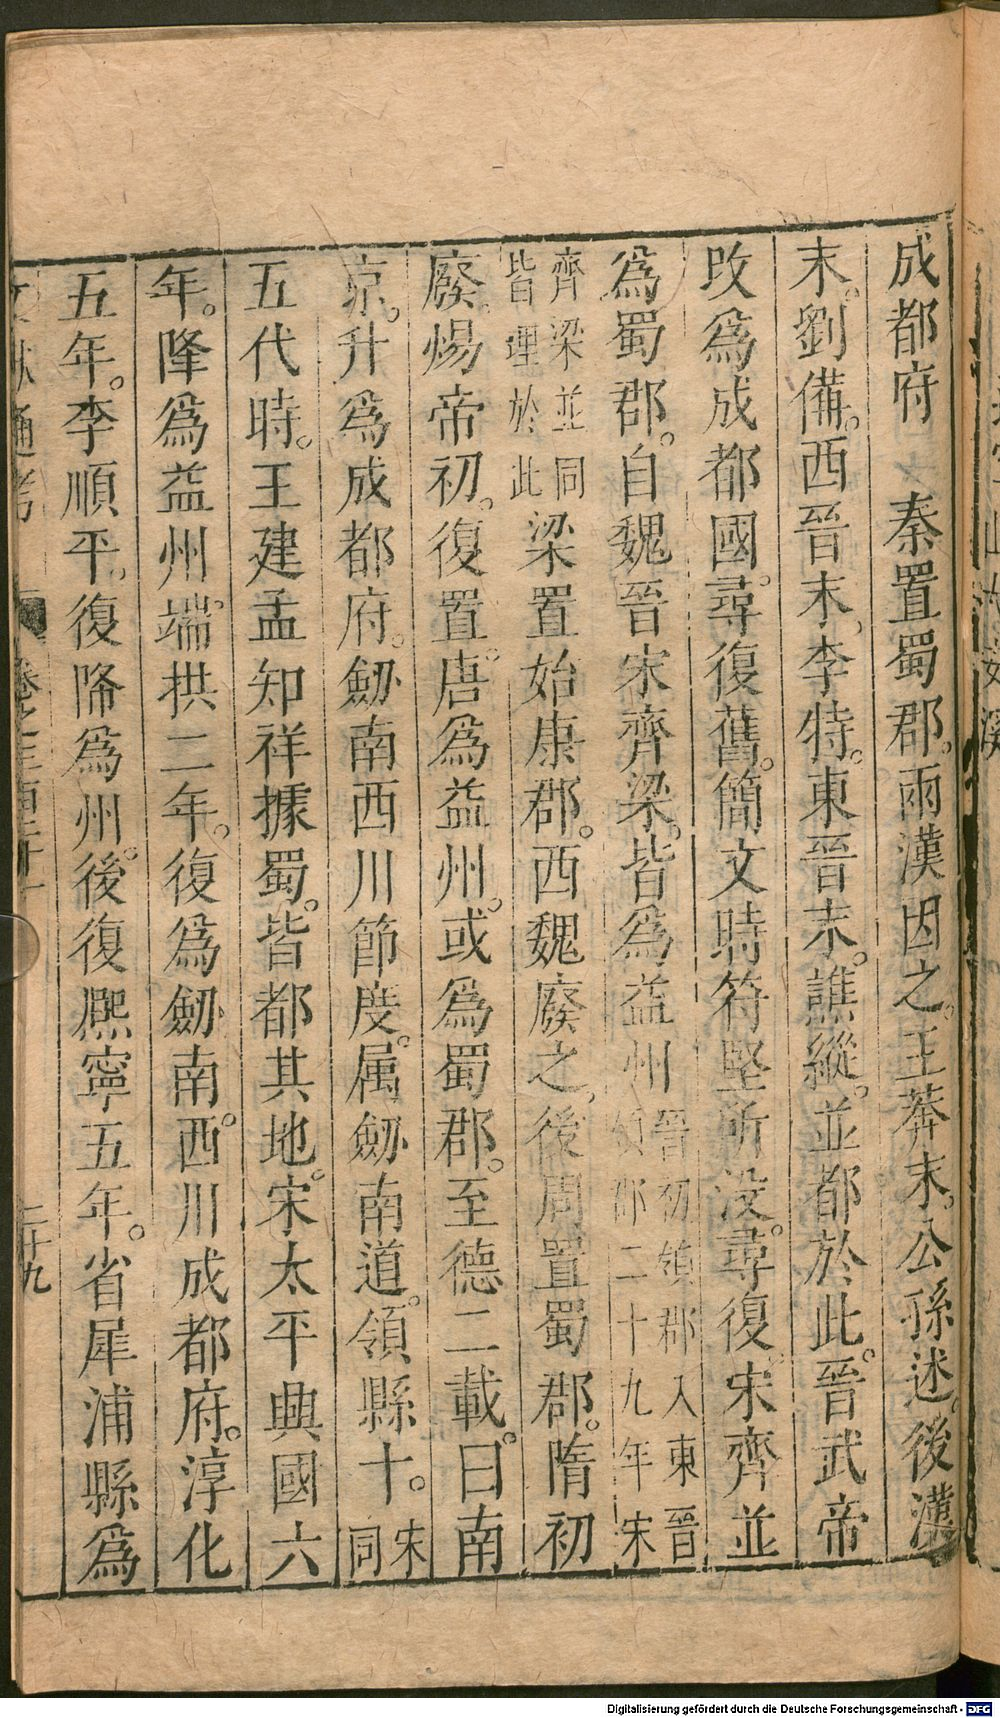 成都府 秦置蜀郡。兩漢因之。王莽末。公孫述。後漢
末。劉備。西晉末。李特。東晉末。譙縱。並都於此。晉武帝
改爲成都國。尋復舊。簡文時符堅所没。尋復。宋齊並
爲蜀郡。自魏晉宋齊梁。皆爲益州晉初領郡入東晉領郡二十九年宋
齊梁並同皆理於此梁置始康郡。西魏廢之。後周置蜀郡。隋初
廢。煬帝初。復置。唐爲益州。或爲蜀郡。至德二載。曰南
京。升爲成都府。劒南西川節度。属劒南道。領縣十。宋同
五代時。王建孟知祥據蜀。皆都其地。宋太平興國六
年。降爲益州。端拱二年。復爲劒南。西川成都府。淳化
五年。李順平。復降爲州。後復。熈寧五年。省犀浦縣爲
文獻通考 卷之三百二十一 二十九
Digitalisierung gefördert durch die Deutsche Forschungsgemeinschaft - DFG